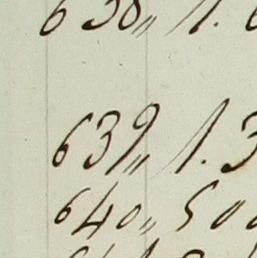 638„ 1.
639„ 1. 3
640„ 500